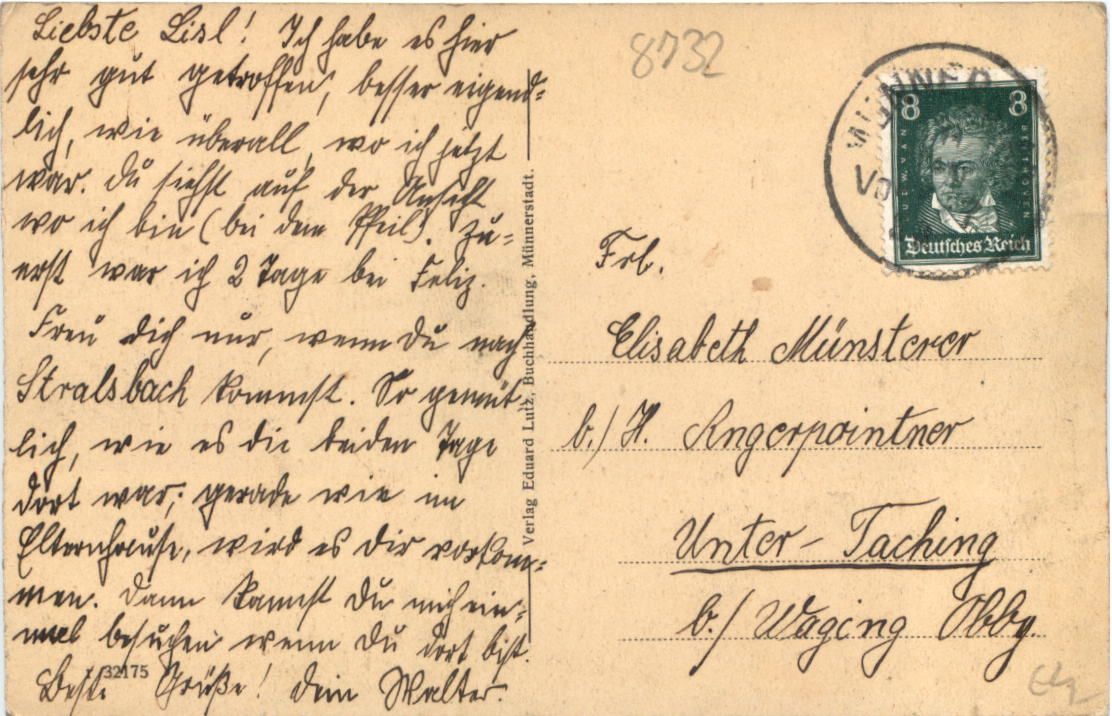 Liebste Lisl! Ich habe es hier
sehr gut getroffen, besser eigend-
lich, wie überall, wo ich jetzt
war. Du siehst auf der Ansicht
wo ich bin (bei dem Pfeil). Zu-
erst war ich 2 Tage bei Feliz.
Freu dich nur, wenn Du nach
Stralsbach kommst. So gemüt-
lich, wie es die beiden Tage
dort war; gerade wie im
Elternhause, wird es Dir vorkom-
men. Dann kannst Du mich ein-
mal besuchen wenn Du dort bist.
Beste Grüße! Dein Walter.
32175
Verlag Eduard Lutz, Buchhandlung, Münnerstadt.
8732
8 8
Deutsches Reich
Frl.
Elisabeth Münsterer
b./ H. Angerpointner
Unter-Taching
b./ Waging Obby.